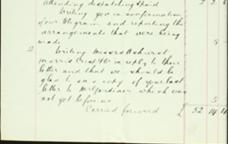 attending despatching paid 2 2
Writing you in confirmation
of our telegram and reporting the
arrangements that were being
made 5
2 Writing Messrs Ashurst
Morris Crisp & Co in reply to their
letter and that we should be
glad to a copy of your last
letter to Mr Gardiner which was
not yet to 5
Carried forward £ 52 14